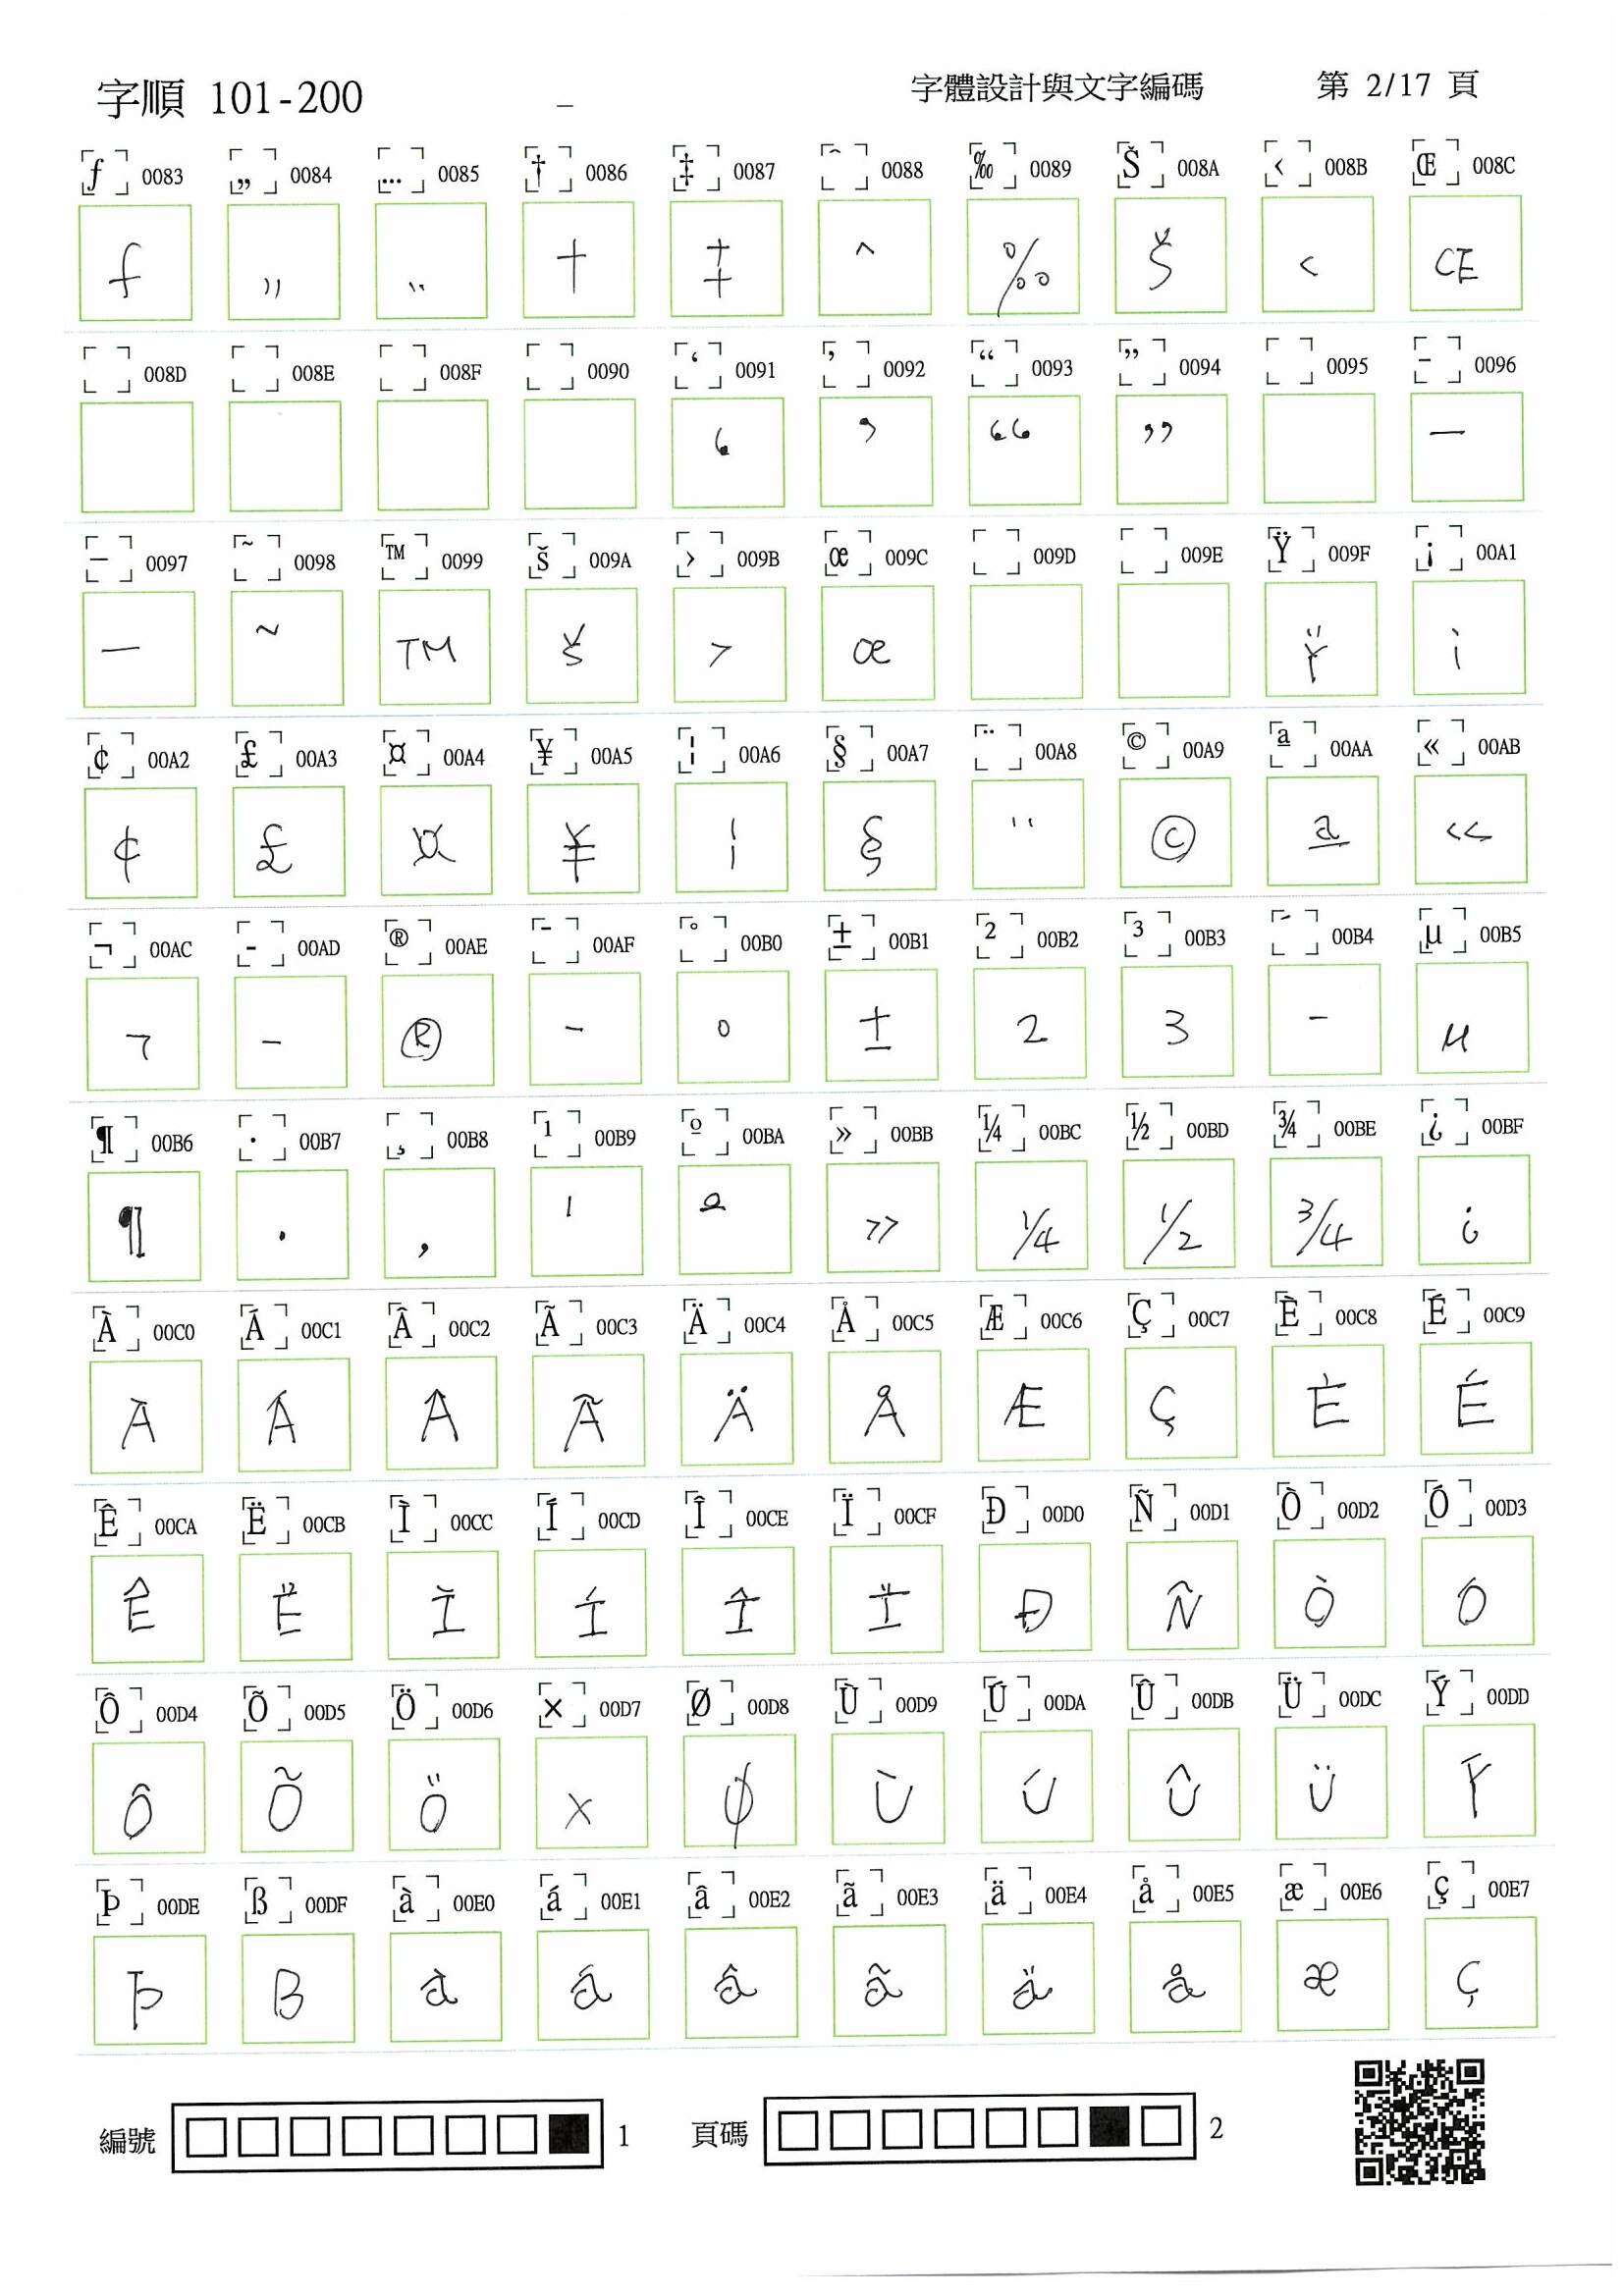 字順 101-200 _ 字體設計與文字編碼 第 2/17 頁
ƒ 0083 „ 0084 … 0085 † 0086 ‡ 0087 ˆ 0088 ‰ 0089 Š 008A ‹ 008B Œ 008C
f „ .. † ‡ ^ ‰ Š < Œ
008D 008E 008F 0090 ‘ 0091 ’ 0092 “ 0093 ” 0094 0095 – 0096
‘ ’ “ ” –
— 0097 ˜ 0098 ™ 0099 š 009A › 009B œ 009C 009D 009E Ÿ 009F ¡ 00A1
— ~ TM š > œ Ÿ i
¢ 00A2 £ 00A3 ¤ 00A4 ¥ 00A5 ¦ 00A6 § 00A7 ¨ 00A8 © 00A9 ª 00AA « 00AB
¢ £ ¤ ¥ ¦ § ¨ © ª «
¬ 00AC - 00AD ® 00AE ¯ 00AF ° 00B0 ± 00B1 ² 00B2 ³ 00B3 ´ 00B4 µ 00B5
¬ - ® - ° ± 2 3 - µ
¶ 00B6 · 00B7 ¸ 00B8 ¹ 00B9 º 00BA » 00BB ¼ 00BC ½ 00BD ¾ 00BE ¿ 00BF
¶ · , ı º » ¼ ½ ¾ ¿
À 00C0 Á 00C1 Â 00C2 Ã 00C3 Ä 00C4 Å 00C5 Æ 00C6 Ç 00C7 È 00C8 É 00C9
À Á Â Ã Ä Å Æ Ç È É
Ê 00CA Ë 00CB Ì 00CC Í 00CD Î 00CE Ï 00CF Ð 00D0 Ñ 00D1 Ò 00D2 Ó 00D3
Ê Ë Ì Í Î Ï Ð Ñ Ò Ó
Ô 00D4 Õ 00D5 Ö 00D6 × 00D7 Ø 00D8 Ù 00D9 Ú 00DA Û 00DB Ü 00DC Ý 00DD
Ô Õ Ö × Ø Ù Ú Û Ü Ý
Þ 00DE ß 00DF à 00E0 á 00E1 â 00E2 ã 00E3 ä 00E4 å 00E5 æ 00E6 ç 00E7
Þ B à á â ã ä å æ ç
編號 1 頁碼 2